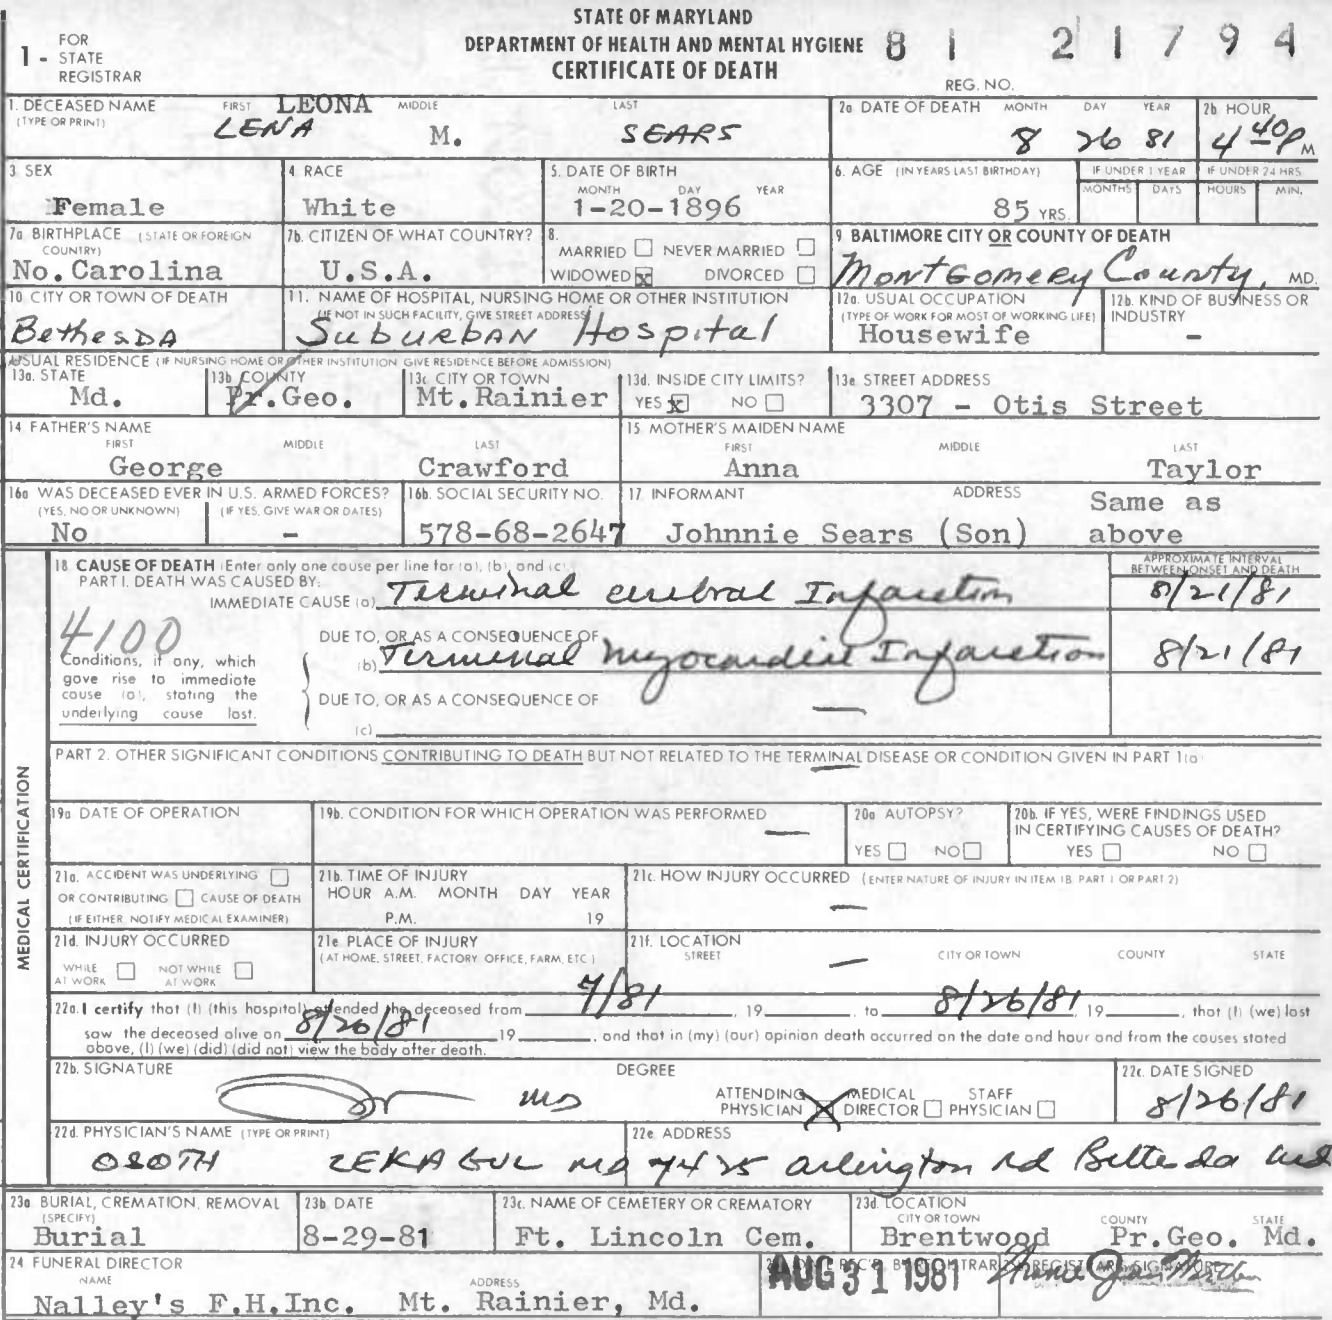 STATE OF MARYLAND
DEPARTMENT OF HEALTH AND MENTAL HYGIENE
CERTIFICATE OF DEATH
1 - FOR STATE REGISTRAR
81 21794
REG. NO.
1. DECEASED NAME (TYPE OR PRINT) FIRST LEONA MIDDLE LAST
LENA M. SEARS
2a DATE OF DEATH MONTH DAY YEAR
8 26 81
2b HOUR
4 40 P M
3 SEX
Female
4 RACE
White
5. DATE OF BIRTH
MONTH DAY YEAR
1-20-1896
6. AGE (IN YEARS LAST BIRTHDAY)
85 YRS.
IF UNDER 1 YEAR
MONTHS DAYS
IF UNDER 24 HRS
HOURS MIN.
7a BIRTHPLACE (STATE OR FOREIGN COUNTRY)
No. Carolina
7b. CITIZEN OF WHAT COUNTRY?
U.S.A.
8.
MARRIED NEVER MARRIED
WIDOWED x DIVORCED
9 BALTIMORE CITY OR COUNTY OF DEATH
Montgomery County, MD.
10 CITY OR TOWN OF DEATH
Bethesda
11. NAME OF HOSPITAL, NURSING HOME OR OTHER INSTITUTION
(IF NOT IN SUCH FACILITY, GIVE STREET ADDRESS)
Suburban Hospital
12a. USUAL OCCUPATION
(TYPE OF WORK FOR MOST OF WORKING LIFE)
Housewife
12b. KIND OF BUSINESS OR INDUSTRY
-
USUAL RESIDENCE (IF NURSING HOME OR OTHER INSTITUTION GIVE RESIDENCE BEFORE ADMISSION)
13a. STATE
Md.
13b COUNTY
Pr.Geo.
13c CITY OR TOWN
Mt.Rainier
13d. INSIDE CITY LIMITS?
YES x NO
13e STREET ADDRESS
3307 - Otis Street
14 FATHER'S NAME
FIRST MIDDLE LAST
George Crawford
15 MOTHER'S MAIDEN NAME
FIRST MIDDLE LAST
Anna Taylor
16a WAS DECEASED EVER IN U.S. ARMED FORCES?
(YES, NO OR UNKNOWN) (IF YES, GIVE WAR OR DATES)
No -
16b. SOCIAL SECURITY NO.
578-68-2647
17 INFORMANT ADDRESS
Johnnie Sears (Son) Same as above
18 CAUSE OF DEATH (Enter only one cause per line for (a), (b), and (c).
PART I. DEATH WAS CAUSED BY:
APPROXIMATE INTERVAL BETWEEN ONSET AND DEATH
IMMEDIATE CAUSE (a) Terminal cerebral Infarction 8/21/81
4100
DUE TO, OR AS A CONSEQUENCE OF
(b) Terminal myocardial Infarction 8/21/81
Conditions, if any, which gave rise to immediate cause (a), stating the underlying cause last.
DUE TO, OR AS A CONSEQUENCE OF
(c)
PART 2. OTHER SIGNIFICANT CONDITIONS CONTRIBUTING TO DEATH BUT NOT RELATED TO THE TERMINAL DISEASE OR CONDITION GIVEN IN PART 1(a)
MEDICAL CERTIFICATION
19a DATE OF OPERATION
19b. CONDITION FOR WHICH OPERATION WAS PERFORMED
20a AUTOPSY?
YES NO
20b. IF YES, WERE FINDINGS USED IN CERTIFYING CAUSES OF DEATH?
YES NO
21a. ACCIDENT WAS UNDERLYING
OR CONTRIBUTING CAUSE OF DEATH
(IF EITHER, NOTIFY MEDICAL EXAMINER)
21b. TIME OF INJURY
HOUR A.M. MONTH DAY YEAR
P.M. 19
21c. HOW INJURY OCCURRED (ENTER NATURE OF INJURY IN ITEM 18 PART 1 OR PART 2)
21d. INJURY OCCURRED
WHILE AT WORK NOT WHILE AT WORK
21e PLACE OF INJURY
(AT HOME, STREET, FACTORY OFFICE, FARM, ETC)
21f. LOCATION
STREET CITY OR TOWN COUNTY STATE
22a. I certify that (I) (this hospital) attended the deceased from 7/81, 19 , to 8/26/81, 19 , that (I) (we) last
saw the deceased alive on 8/26/81 19 , and that in (my) (our) opinion death occurred on the date and hour and from the causes stated
above, (I) (we) (did) (did not) view the body after death.
22b. SIGNATURE DEGREE
MD
ATTENDING PHYSICIAN X MEDICAL DIRECTOR STAFF PHYSICIAN
22c. DATE SIGNED
8/26/81
22d. PHYSICIAN'S NAME (TYPE OR PRINT)
OSOTH LEKAGUL MD
22e ADDRESS
7425 Arlington Rd Bethesda Md
23a BURIAL, CREMATION, REMOVAL (SPECIFY)
Burial
23b DATE
8-29-81
23c. NAME OF CEMETERY OR CREMATORY
Ft. Lincoln Cem.
23d. LOCATION
CITY OR TOWN COUNTY STATE
Brentwood Pr.Geo. Md.
24 FUNERAL DIRECTOR
NAME ADDRESS
Nalley's F.H.Inc. Mt. Rainier, Md.
AUG 31 1981
REGISTRAR'S SIGNATURE